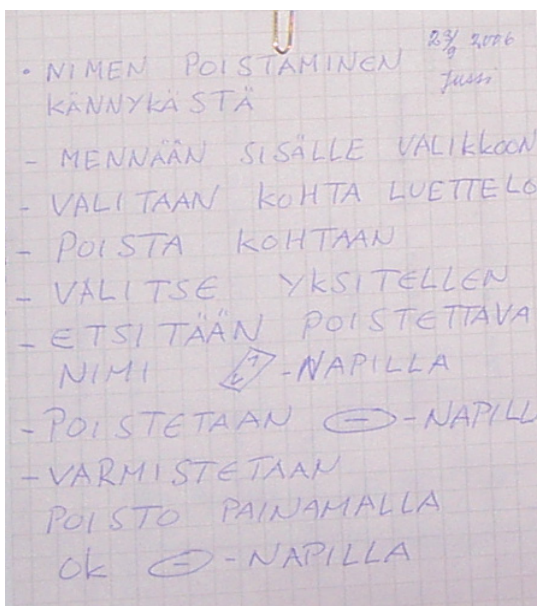 23/9 2006
• NIMEN POISTAMINEN
Jussi
KÄNNYKÄSTÄ
- MENNÄÄN SISÄLLE VALIKKOON
- VALITAAN KOHTA LUETTELO
- POISTA KOHTAAN
- VALITSE YKSITELLEN
- ETSITÄÄN POISTETTAVA
NIMI -NAPILLA
- POISTETAAN - NAPILL
- VARMISTETAAN
POISTO PAINAMALLA
Ok - NAPILLA